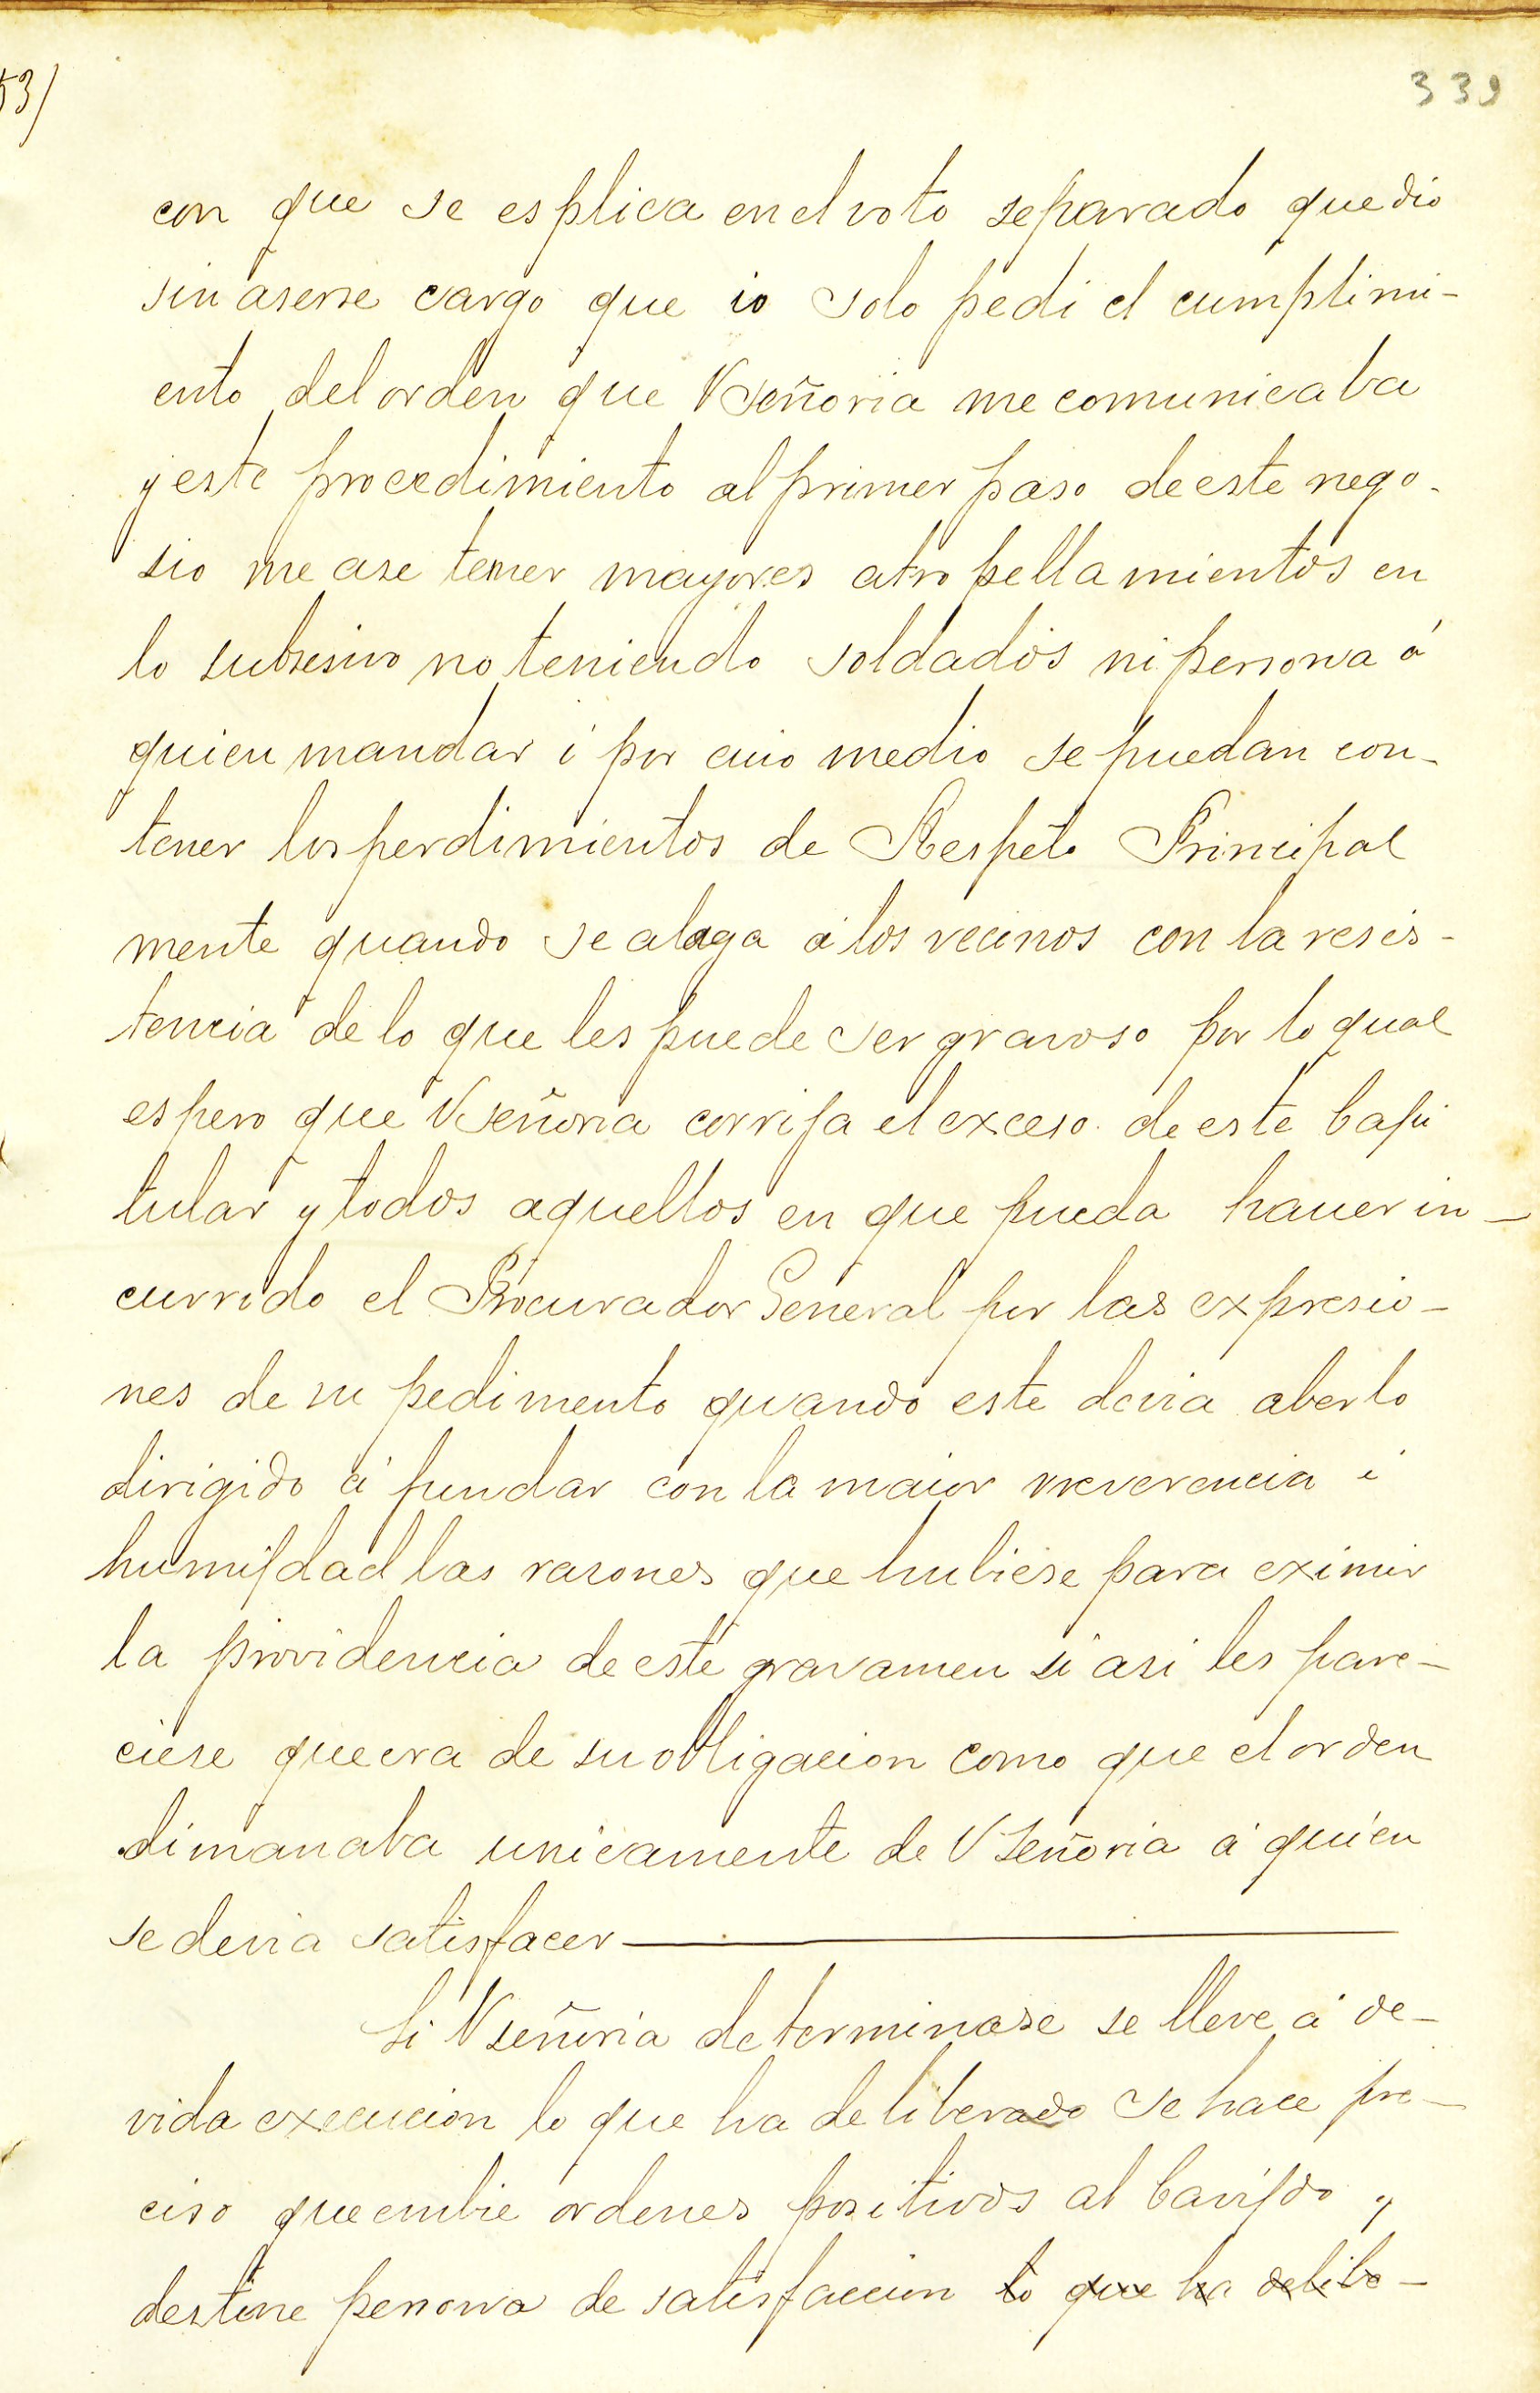 53/
339
con que se esplica en el voto separado que dio
sin aserse cargo que io solo pedi el cumplimi-
ento del orden que VSeñoria me comunicaba
y este procedimiento al primer paso de este nego-
sio me ase temer mayores atropellamientos en
lo subsesivo no teniendo soldados ni persona á
quien mandar i por cuio medio se puedan con-
tener los perdimientos de Respeto Principal
mente quando se alaga á los vecinos con la resis-
tencia de lo que les puede ser gravoso por lo qual
espero que VSeñoria corrija el exceso de este Capi
tular y todos aquellos en que pueda haver in-
currido el Procurador General por las expresio-
nes de su pedimento quando este devia aberlo
dirigido á fundar con la maior reverencia i
humildad las rasones que hubiese para eximir
la providencia de este gravamen si asi les pare-
ciese que era de su obligacion como que el orden
dimanaba unicamente de VSeñoria á quien
se devia satisfacer
Si VSeñoria determinase se lleve á de-
vida execucion lo que ha deliberado se hace pre-
ciso que embie ordenes positivos al Cavildo y
destine persona de satisfaccion lo que ha delibe-